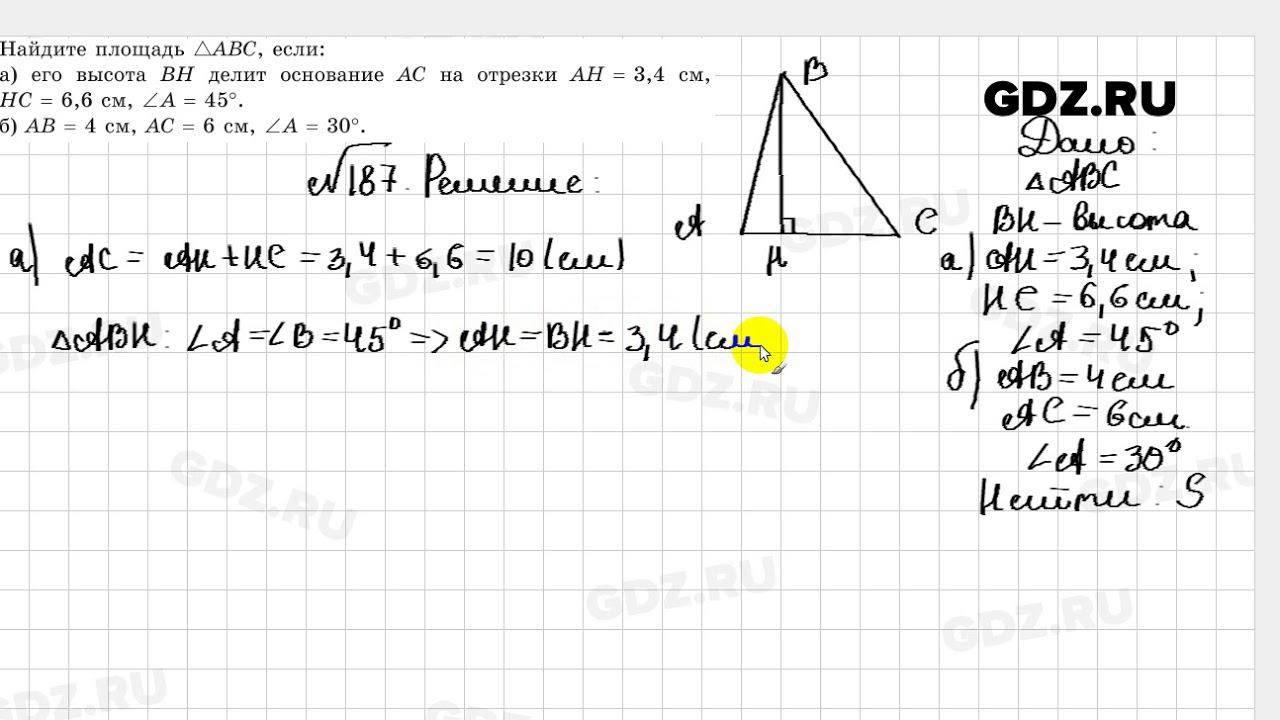 Найдите площадь △ABC, если:
а) его высота BH делит основание AC на отрезки AH = 3,4 см,
HC = 6,6 см, ∠A = 45°.
б) AB = 4 см, AC = 6 см, ∠A = 30°.
№187. Решение:
а) AC = AH+HC = 3,4+6,6 = 10 (см)
△ABH: ∠A=∠B=45° => AH=BH=3,4 (см
B
A
H
C
GDZ.RU
Дано:
△ABC
BH – высота
а) AH=3,4 см;
HC=6,6 см;
∠A=45°
б) AB=4 см
AC=6 см
∠A=30°
Найти: S
GDZ.RU
GDZ.RU
GDZ.RU
GDZ.RU
GDZ.RU
GDZ.RU
GDZ.RU
GDZ.RU
GDZ.RU
GDZ.RU